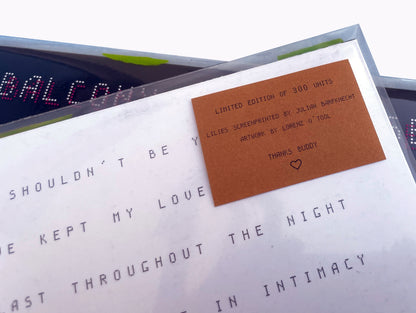 BALCON
LIMITED EDITION OF 300 UNITS
LILIES SCREENPRINTED BY JULIAN BANFKNECHT
ARTWORK BY LORENZ O´TOOL
THANKS BUDDY
SHOULDN´T BE Y
E KEPT MY LOVE
AST THROUGHOUT THE NIGHT
IN INTIMACY